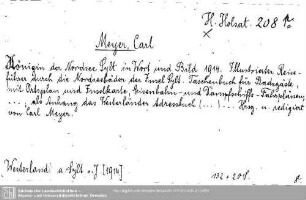 H. Holsat. 208 k
Meyer, Carl
Königin der Nordsee Sylt in Wort und Bild 1914. Illustrierter Reise-
führer durch die Nordseebäder der Insel Sylt. Taschenbuch für Badegäste,
mit Ortsplan und Inselkarte, Eisenbahn- und Dampfschiffs-Fahrplänen
..., als Anhang das Westerländer Adressbuch (...) ... Hrsg. u. redigiert
von Carl Meyer.
Westerland a. Sylt o. J. [1914]
132 + 20 S. 8°.